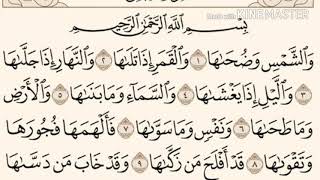 Made with KINEMASTER
بِسْمِ ٱللَّهِ ٱلرَّحْمَٰنِ ٱلرَّحِيمِ
وَٱلشَّمْسِ وَضُحَىٰهَا ١ وَٱلْقَمَرِ إِذَا تَلَىٰهَا ٢ وَٱلنَّهَارِ إِذَا جَلَّىٰهَا
٣ وَٱلَّيْلِ إِذَا يَغْشَىٰهَا ٤ وَٱلسَّمَآءِ وَمَا بَنَىٰهَا ٥ وَٱلْأَرْضِ
وَمَا طَحَىٰهَا ٦ وَنَفْسٍ وَمَا سَوَّىٰهَا ٧ فَأَلْهَمَهَا فُجُورَهَا
وَتَقْوَىٰهَا ٨ قَدْ أَفْلَحَ مَن زَكَّىٰهَا ٩ وَقَدْ خَابَ مَن دَسَّىٰهَا